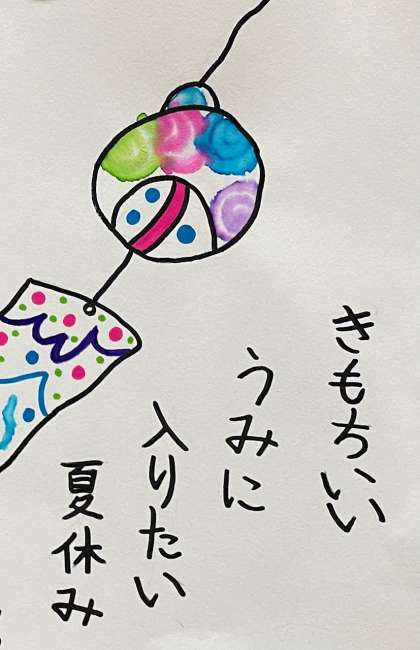 きもちいい
うみに
入りたい
夏休み